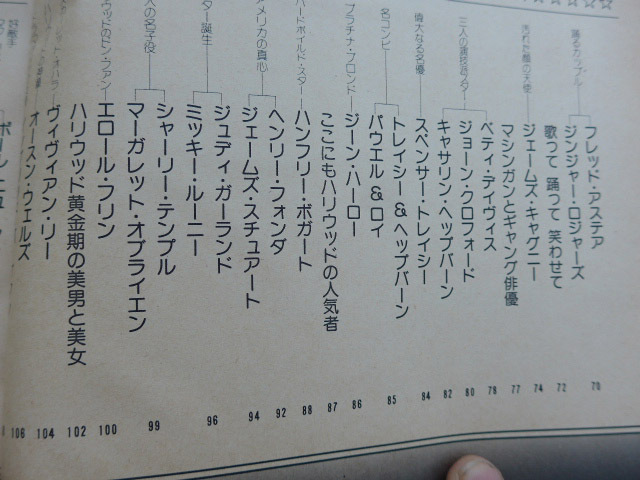 踊るカップル
フレッド・アステア
ジンジャー・ロジャーズ 70
歌って 踊って 笑わせて 72
汚れた顔の天使
ジェームズ・キャグニー 74
マシンガンとギャング俳優 77
三人の演技派スター
ベティ・デイヴィス 78
ジョーン・クロフォード 80
キャサリン・ヘップバーン 82
偉大なる名優
スペンサー・トレイシー 84
名コンビ
トレイシー&ヘップバーン
パウエル&ロイ 85
プラチナ・ブロンド
ジーン・ハーロー 86
ここにもハリウッドの人気者 87
ハードボイルド・スター
ハンフリー・ボガート 88
アメリカの真心
ヘンリー・フォンダ 92
ジェームズ・スチュアート 94
ター誕生
ジュディ・ガーランド
ミッキー・ルーニー 96
人の名子役
シャーリー・テンプル
マーガレット・オブライエン 99
ウッドのドン・ファン
エロール・フリン 100
ハリウッド黄金期の美男と美女 102
ヴィヴィアン・リー 104
オースン・ウェルズ 106
好敵手